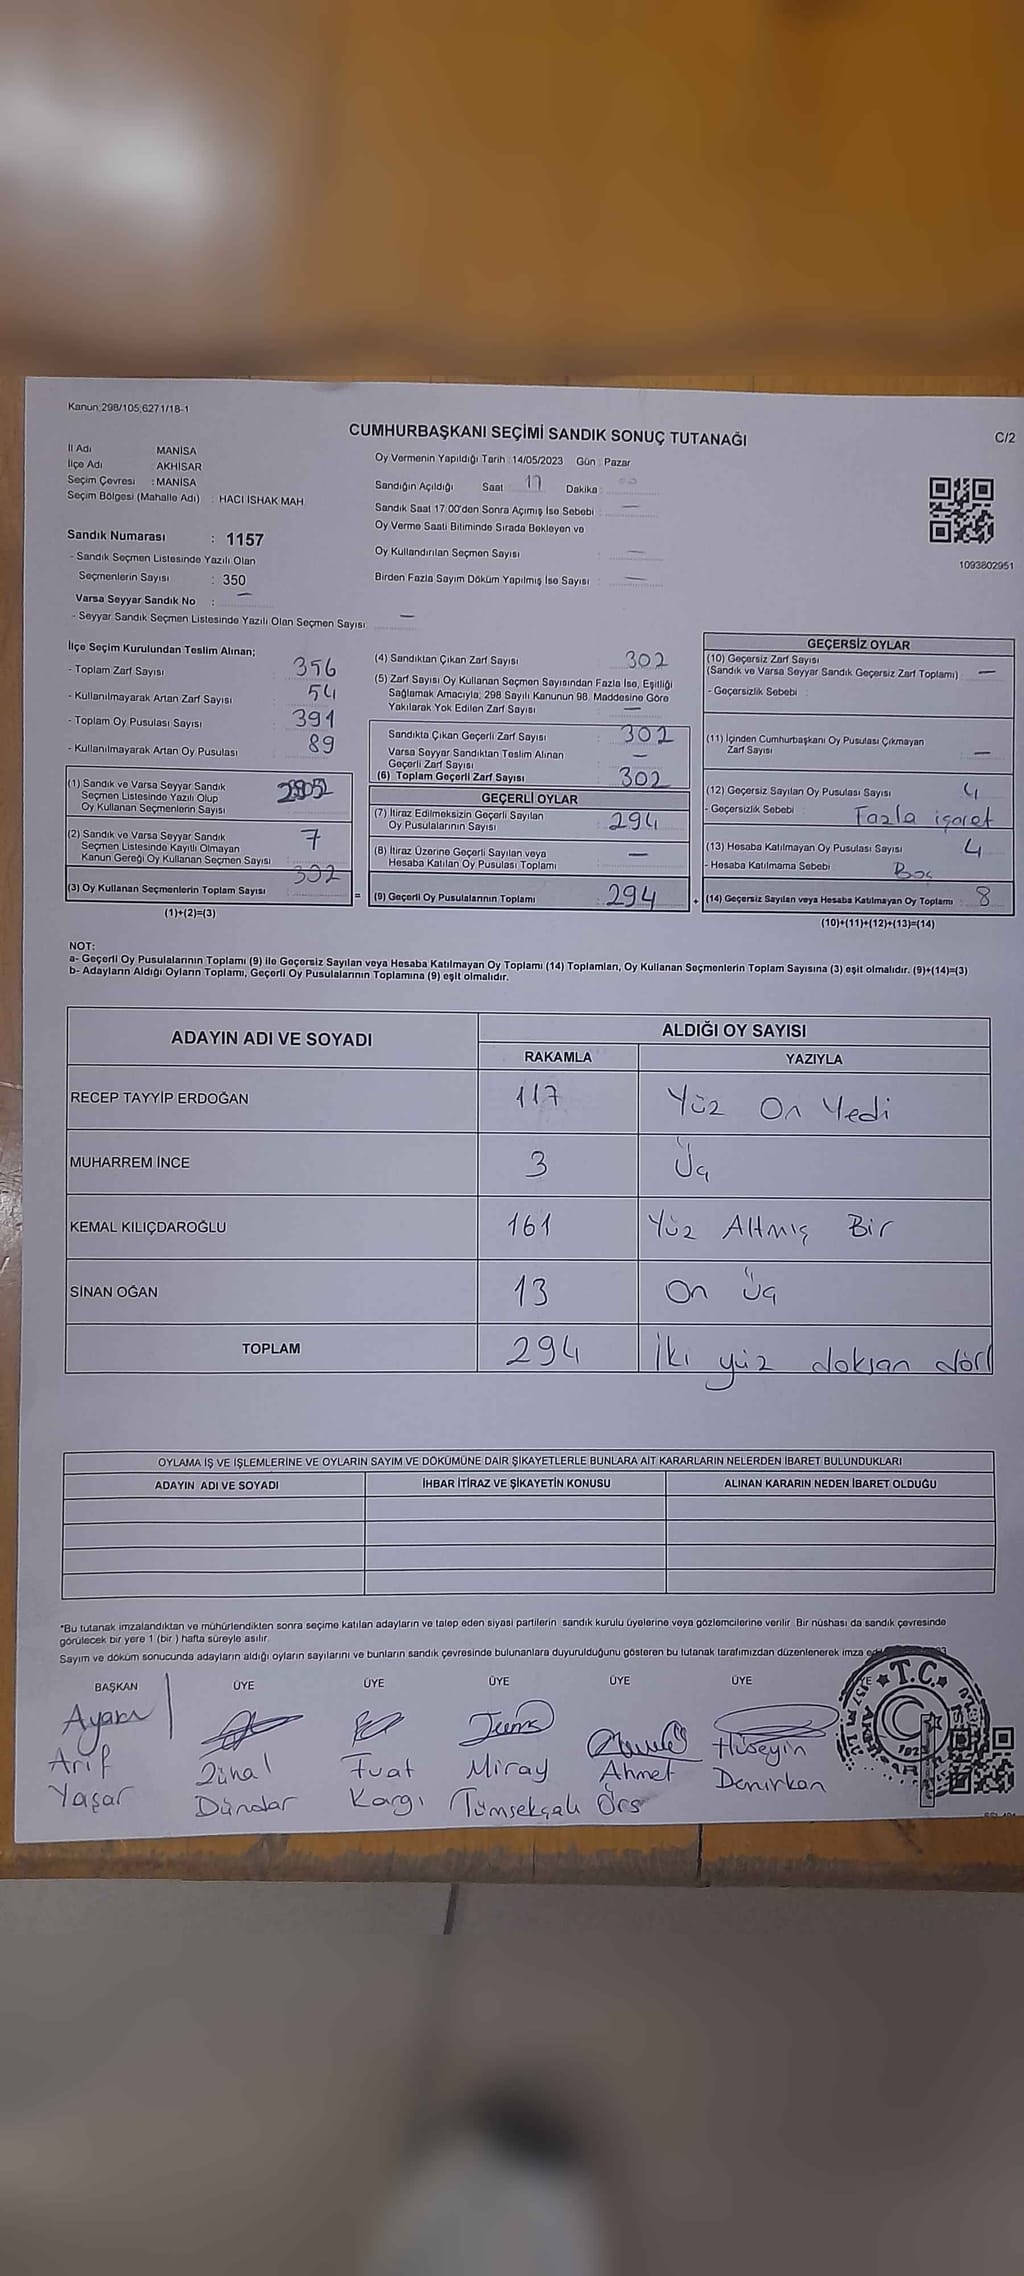 Kanun:298/105,6271/18-1
CUMHURBAŞKANI SEÇİMİ SANDIK SONUÇ TUTANAĞI
C/2
İl Adı MANİSA
İlçe Adı : AKHİSAR
Seçim Çevresi : MANİSA
Seçim Bölgesi (Mahalle Adı) : HACI İSHAK MAH.
Oy Vermenin Yapıldığı Tarih : 14/05/2023 Gün : Pazar
Sandığın Açıldığı Saat : 17 Dakika : 00
Sandık Saat 17:00'den Sonra Açımış İse Sebebi : —
Oy Verme Saati Bitiminde Sırada Bekleyen ve
Oy Kullandırılan Seçmen Sayısı : —
Birden Fazla Sayım Döküm Yapılmış İse Sayısı : —
1093802951
Sandık Numarası : 1157
- Sandık Seçmen Listesinde Yazılı Olan
Seçmenlerin Sayısı : 350
Varsa Seyyar Sandık No : —
- Seyyar Sandık Seçmen Listesinde Yazılı Olan Seçmen Sayısı: —
İlçe Seçim Kurulundan Teslim Alınan;
- Toplam Zarf Sayısı : 356
- Kullanılmayarak Artan Zarf Sayısı : 54
- Toplam Oy Pusulası Sayısı : 391
- Kullanılmayarak Artan Oy Pusulası : 89
(1) Sandık ve Varsa Seyyar Sandık
Seçmen Listesinde Yazılı Olup
Oy Kullanan Seçmenlerin Sayısı :
(2) Sandık ve Varsa Seyyar Sandık
Seçmen Listesinde Kayıtlı Olmayan
Kanun Gereği Oy Kullanan Seçmen Sayısı : 7
(3) Oy Kullanan Seçmenlerin Toplam Sayısı : 302
(1)+(2)=(3)
(4) Sandıktan Çıkan Zarf Sayısı : 302
(5) Zarf Sayısı Oy Kullanan Seçmen Sayısından Fazla İse, Eşitliği
Sağlamak Amacıyla; 298 Sayılı Kanunun 98. Maddesine Göre
Yakılarak Yok Edilen Zarf Sayısı : —
Sandıkta Çıkan Geçerli Zarf Sayısı : 302
Varsa Seyyar Sandıktan Teslim Alınan
Geçerli Zarf Sayısı : —
(6) Toplam Geçerli Zarf Sayısı : 302
GEÇERLİ OYLAR
(7) İtiraz Edilmeksizin Geçerli Sayılan
Oy Pusulalarının Sayısı : 294
(8) İtiraz Üzerine Geçerli Sayılan veya
Hesaba Katılan Oy Pusulası Toplamı : —
= (9) Geçerli Oy Pusulalarının Toplamı : 294 +
GEÇERSİZ OYLAR
(10) Geçersiz Zarf Sayısı
(Sandık ve Varsa Seyyar Sandık Geçersiz Zarf Toplamı) : —
- Geçersizlik Sebebi :
(11) İçinden Cumhurbaşkanı Oy Pusulası Çıkmayan
Zarf Sayısı : —
(12) Geçersiz Sayılan Oy Pusulası Sayısı : 4
- Geçersizlik Sebebi : Fazla işaret
(13) Hesaba Katılmayan Oy Pusulası Sayısı : 4
- Hesaba Katılmama Sebebi : Boş
(14) Geçersiz Sayılan veya Hesaba Katılmayan Oy Toplamı : 8
(10)+(11)+(12)+(13)=(14)
NOT:
a- Geçerli Oy Pusulalarının Toplamı (9) ile Geçersiz Sayılan veya Hesaba Katılmayan Oy Toplamı (14) Toplamları, Oy Kullanan Seçmenlerin Toplam Sayısına (3) eşit olmalıdır. (9)+(14)=(3)
b- Adayların Aldığı Oyların Toplamı, Geçerli Oy Pusulalarının Toplamına (9) eşit olmalıdır.
ADAYIN ADI VE SOYADI ALDIĞI OY SAYISI
RAKAMLA YAZIYLA
RECEP TAYYİP ERDOĞAN 117 Yüz On Yedi
MUHARREM İNCE 3 Üç
KEMAL KILIÇDAROĞLU 161 Yüz Altmış Bir
SİNAN OĞAN 13 On Üç
TOPLAM 294 İki yüz doksan dört
OYLAMA İŞ VE İŞLEMLERİNE VE OYLARIN SAYIM VE DÖKÜMÜNE DAİR ŞİKAYETLERLE BUNLARA AİT KARARLARIN NELERDEN İBARET BULUNDUKLARI
ADAYIN ADI VE SOYADI İHBAR İTİRAZ VE ŞİKAYETİN KONUSU ALINAN KARARIN NEDEN İBARET OLDUĞU
*Bu tutanak imzalandıktan ve mühürlendikten sonra seçime katılan adayların ve talep eden siyasi partilerin sandık kurulu üyelerine veya gözlemcilerine verilir. Bir nüshası da sandık çevresinde
görülecek bir yere 1 (bir ) hafta süreyle asılır.
Sayım ve döküm sonucunda adayların aldığı oyların sayılarını ve bunların sandık çevresinde bulunanlara duyurulduğunu gösteren bu tutanak tarafımızdan düzenlenerek imza
BAŞKAN ÜYE ÜYE ÜYE ÜYE ÜYE
T.C.
Arif Zünal Fuat Miray Ahmet Hüseyin
Yaşar Dündar Kargı Tümsekçalı Örs Demirkan